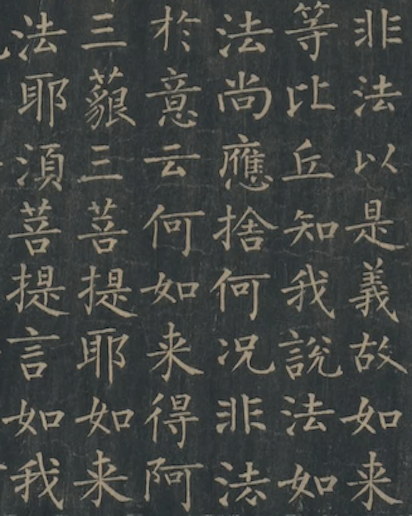 非法以是義故如来
等比丘知我說法如
法尚應捨何况非法
於意云何如来得阿
三藐三菩提耶如来
法耶湏菩提言如我